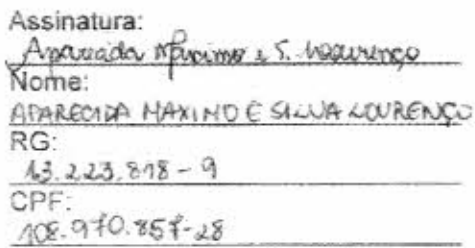 Assinatura:
Aparecida Maximo e S. Lourenço
Nome:
APARECIDA MAXIMO E SILVA LOURENÇO
RG:
13.223.818-9
CPF:
108.970.857-28